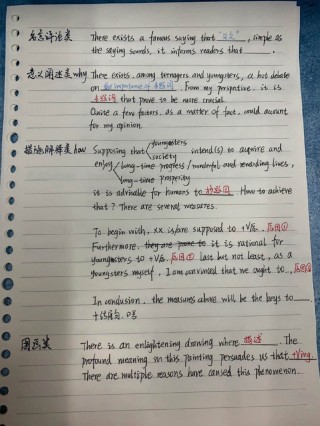 名言评论类 There exists a famous saying that "名言", simple as
the saying sounds, it informs readers that ____.
意义阐述类 why There exists, among teenagers and youngsters, a hot debate
on the importance of 主题词. From my perspective, it is
主题词 that prove to be more crucial.
Quite a few factors, as a matter of fact, could account
for my opinion.
措施解释类 how Supposing that youngsters / society intend(s) to acquire and
enjoy long-time progress / wonderful and rewarding lives,
long-time prosperity
it is advisable for humans to 主题词. How to achieve
that? There are several measures.
To begin with, xx is/are supposed to +V原, 原因①
Furthermore, they are prone to it is rational for
youngsters to +V原, 原因② last but not least, as a
youngsters myself, I am convinced that we ought to.., 原因③
In conclusion, the measures above will be the keys to ____.
图画类 There is an enlightening drawing where 描述. The
profound meaning in this painting persuades us that +Ving.
There are multiple reasons have caused this phenomenon.